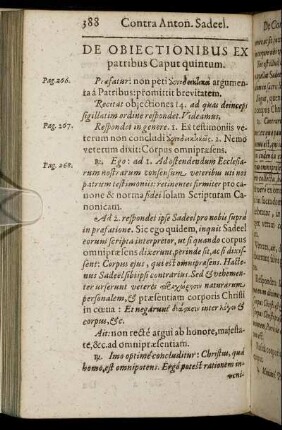 388 Contra Anton. Sadeel.
DE OBIECTIONIBUS EX
patribus Caput quintum.
Pag. 266. Præfatur: non peti argumen-
ta à Patribus: promittit brevitatem.
Recitat objectiones 14. ad quas deinceps
sigillatim ordine respondet. Videamus.
Pag. 267. Respondet in genere. 1. Ex testimoniis ve-
terum non concludi 2. Nemo
veterum dixit: Corpus omnipræsens.
Pag. 268. Ego: ad 1. Ad ostendendum Ecclesia-
rum nostrarum consensum, veteribus uti nos
patrum testimoniis: retinentes firmiter pro ca-
none & norma fidei solam Scripturam Ca-
nonicam.
Ad 2. respondet ipse Sadeel pro nobis suprà
in præfatione. Sic ego quidem, inquit Sadeel
eorum scripta interpretor, ut si quando corpus
omnipræsens dixerunt, perinde sit, ac si dixis-
sent: Corpus ejus, qui est omnipræsens. Hacte-
nus Sadeel sibi ipsi contrarius. Sed & vehemen-
ter urserunt veteres naturarum,
personalem, & præsentiam corporis Christi
in cœna: Et negarunt inter λόγον &
corpus, &c.
Ait: non rectè argui ab honore, majesta-
te, &c. ad omnipræsentiam.
Imo optimè concluditur: Christus, quà
homo, est omnipotens. Ergò potest rationem in-